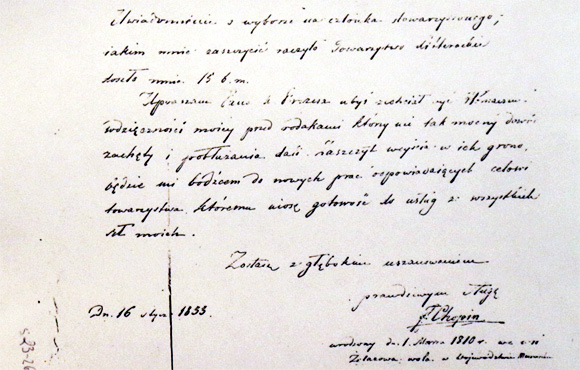 Uwiadomienie o wyborze na członka stowarzyszonego,
jakim mnie zaszczycić raczyło Towarzystwo Literackie
doszło mnie 15 b. m.
Upraszam Prezesa abyś zechciał być tłumaczem
wdzięczności mojej przed rodakami który mi tak mocny dowód
zachęty i pobłażania dali. Zaszczyt wejścia w ich grono,
będzie mi bodźcem do nowych prac odpowiadających celowi
towarzystwa któremu niosę gotowość do usług z wszystkich
sił moich.
Zostaję z głębokim uszanowaniem
prawdziwym sługą
F Chopin
urodzony dn. 1. Marca 1810 r. we wsi
Żelazowa wola w Województwie
Dn. 16 stycz 1833